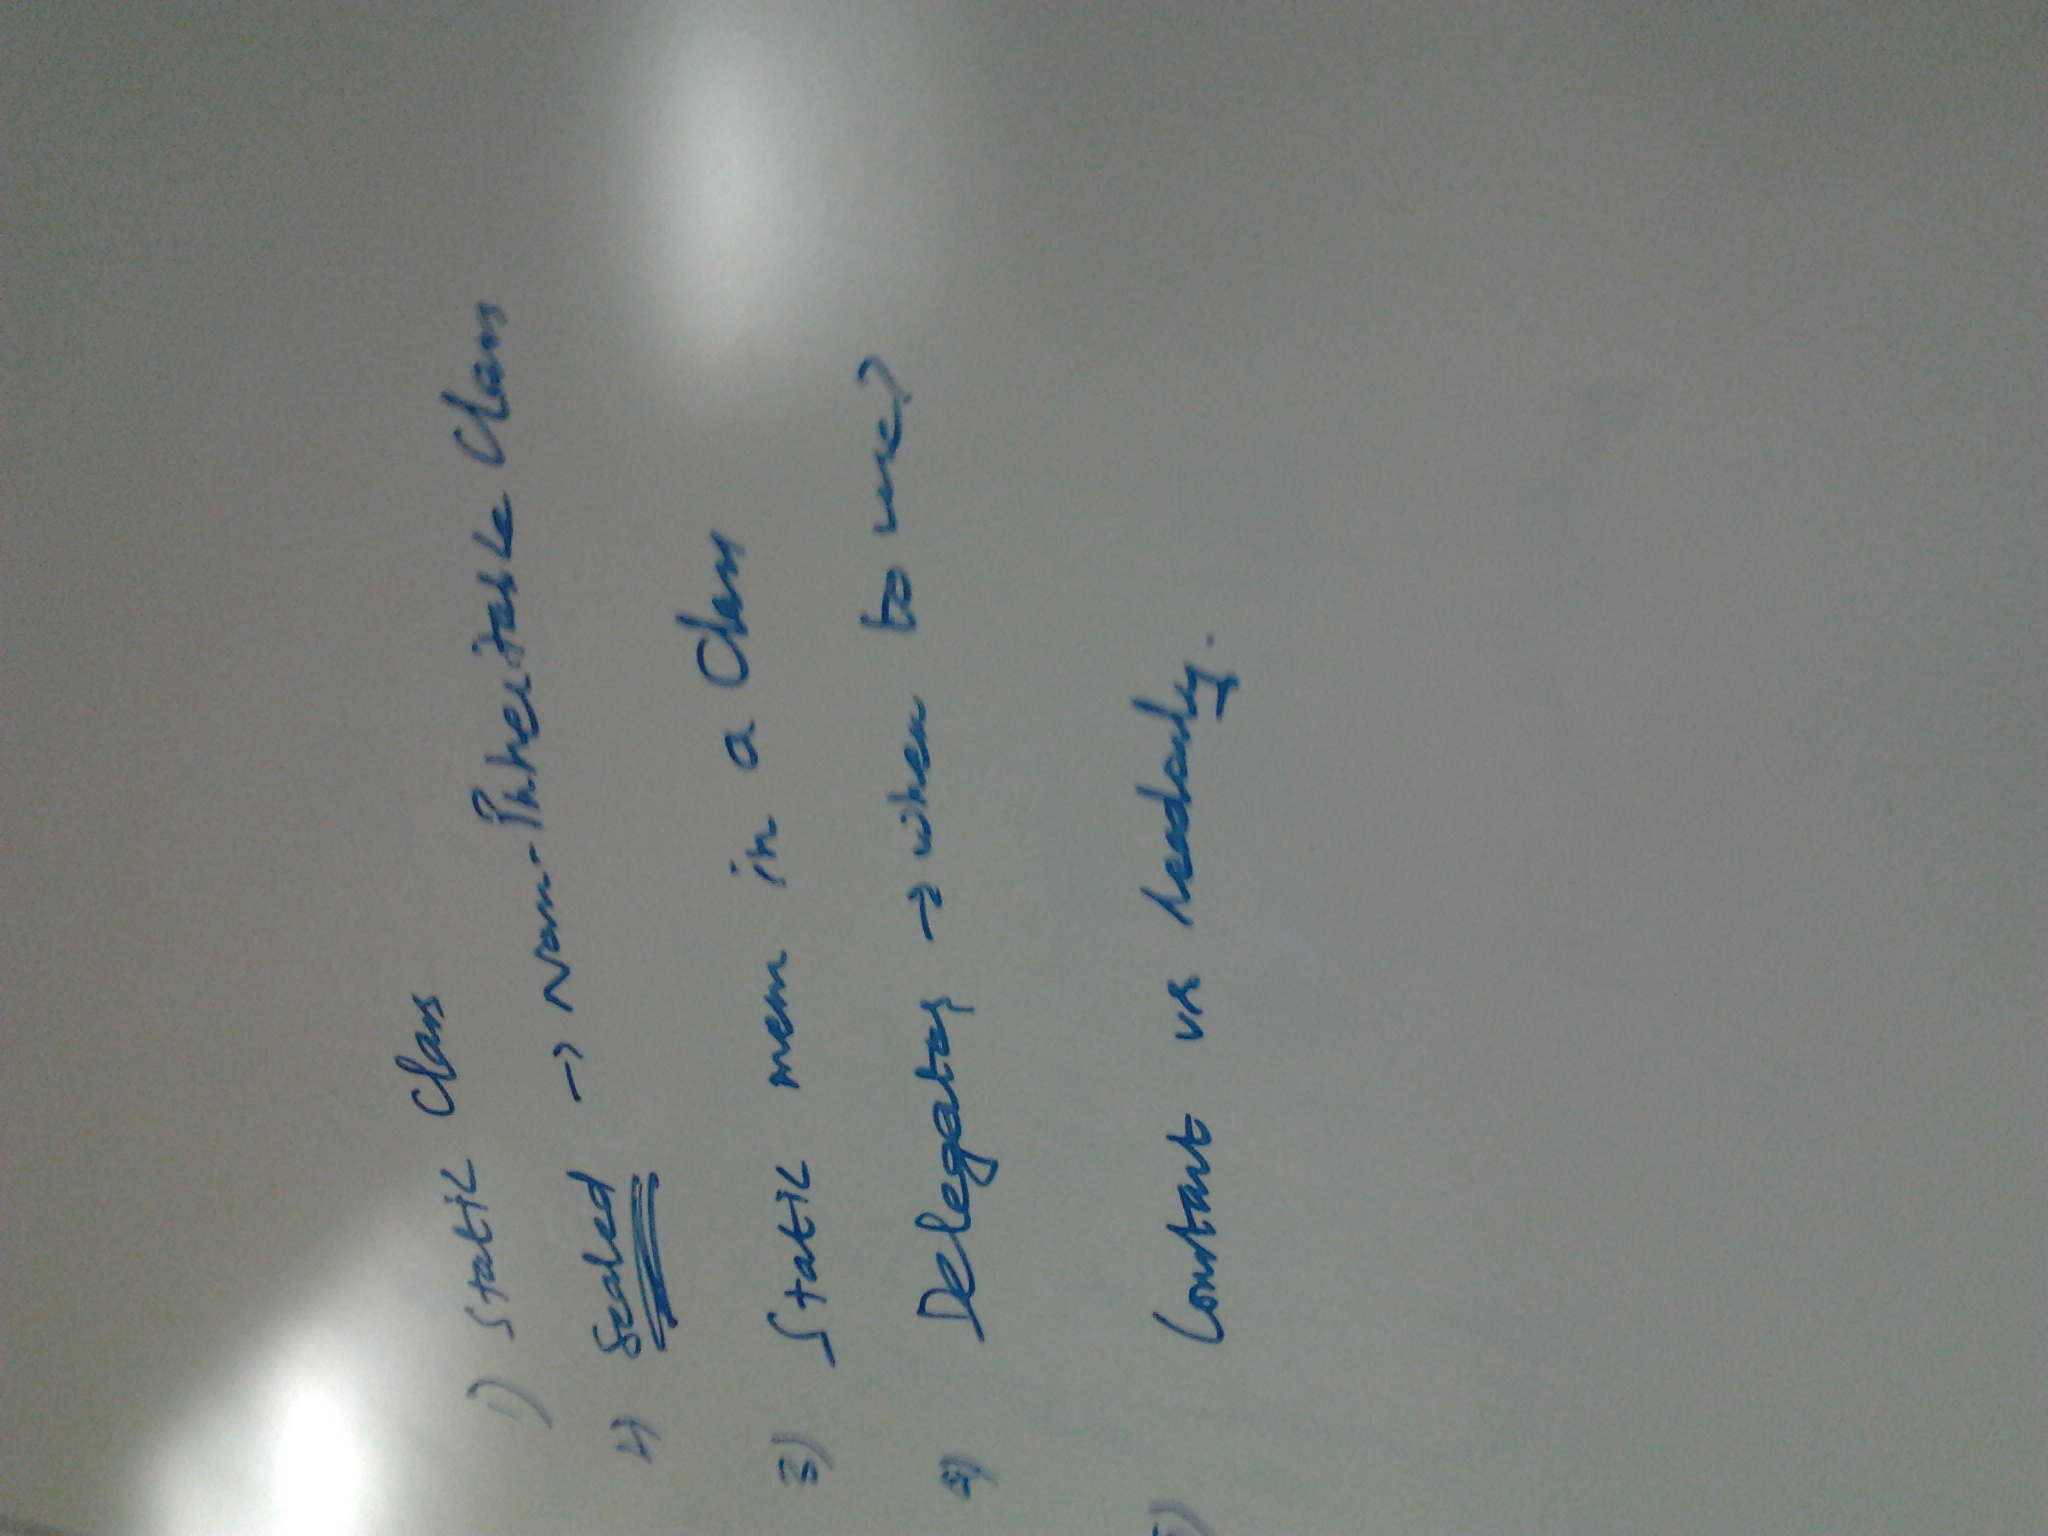 1) Static Class
2) Sealed → Non-Inheritable Class
3) Static mem in a Class
4) Delegates → when to use?
5) Constant vs Readonly.